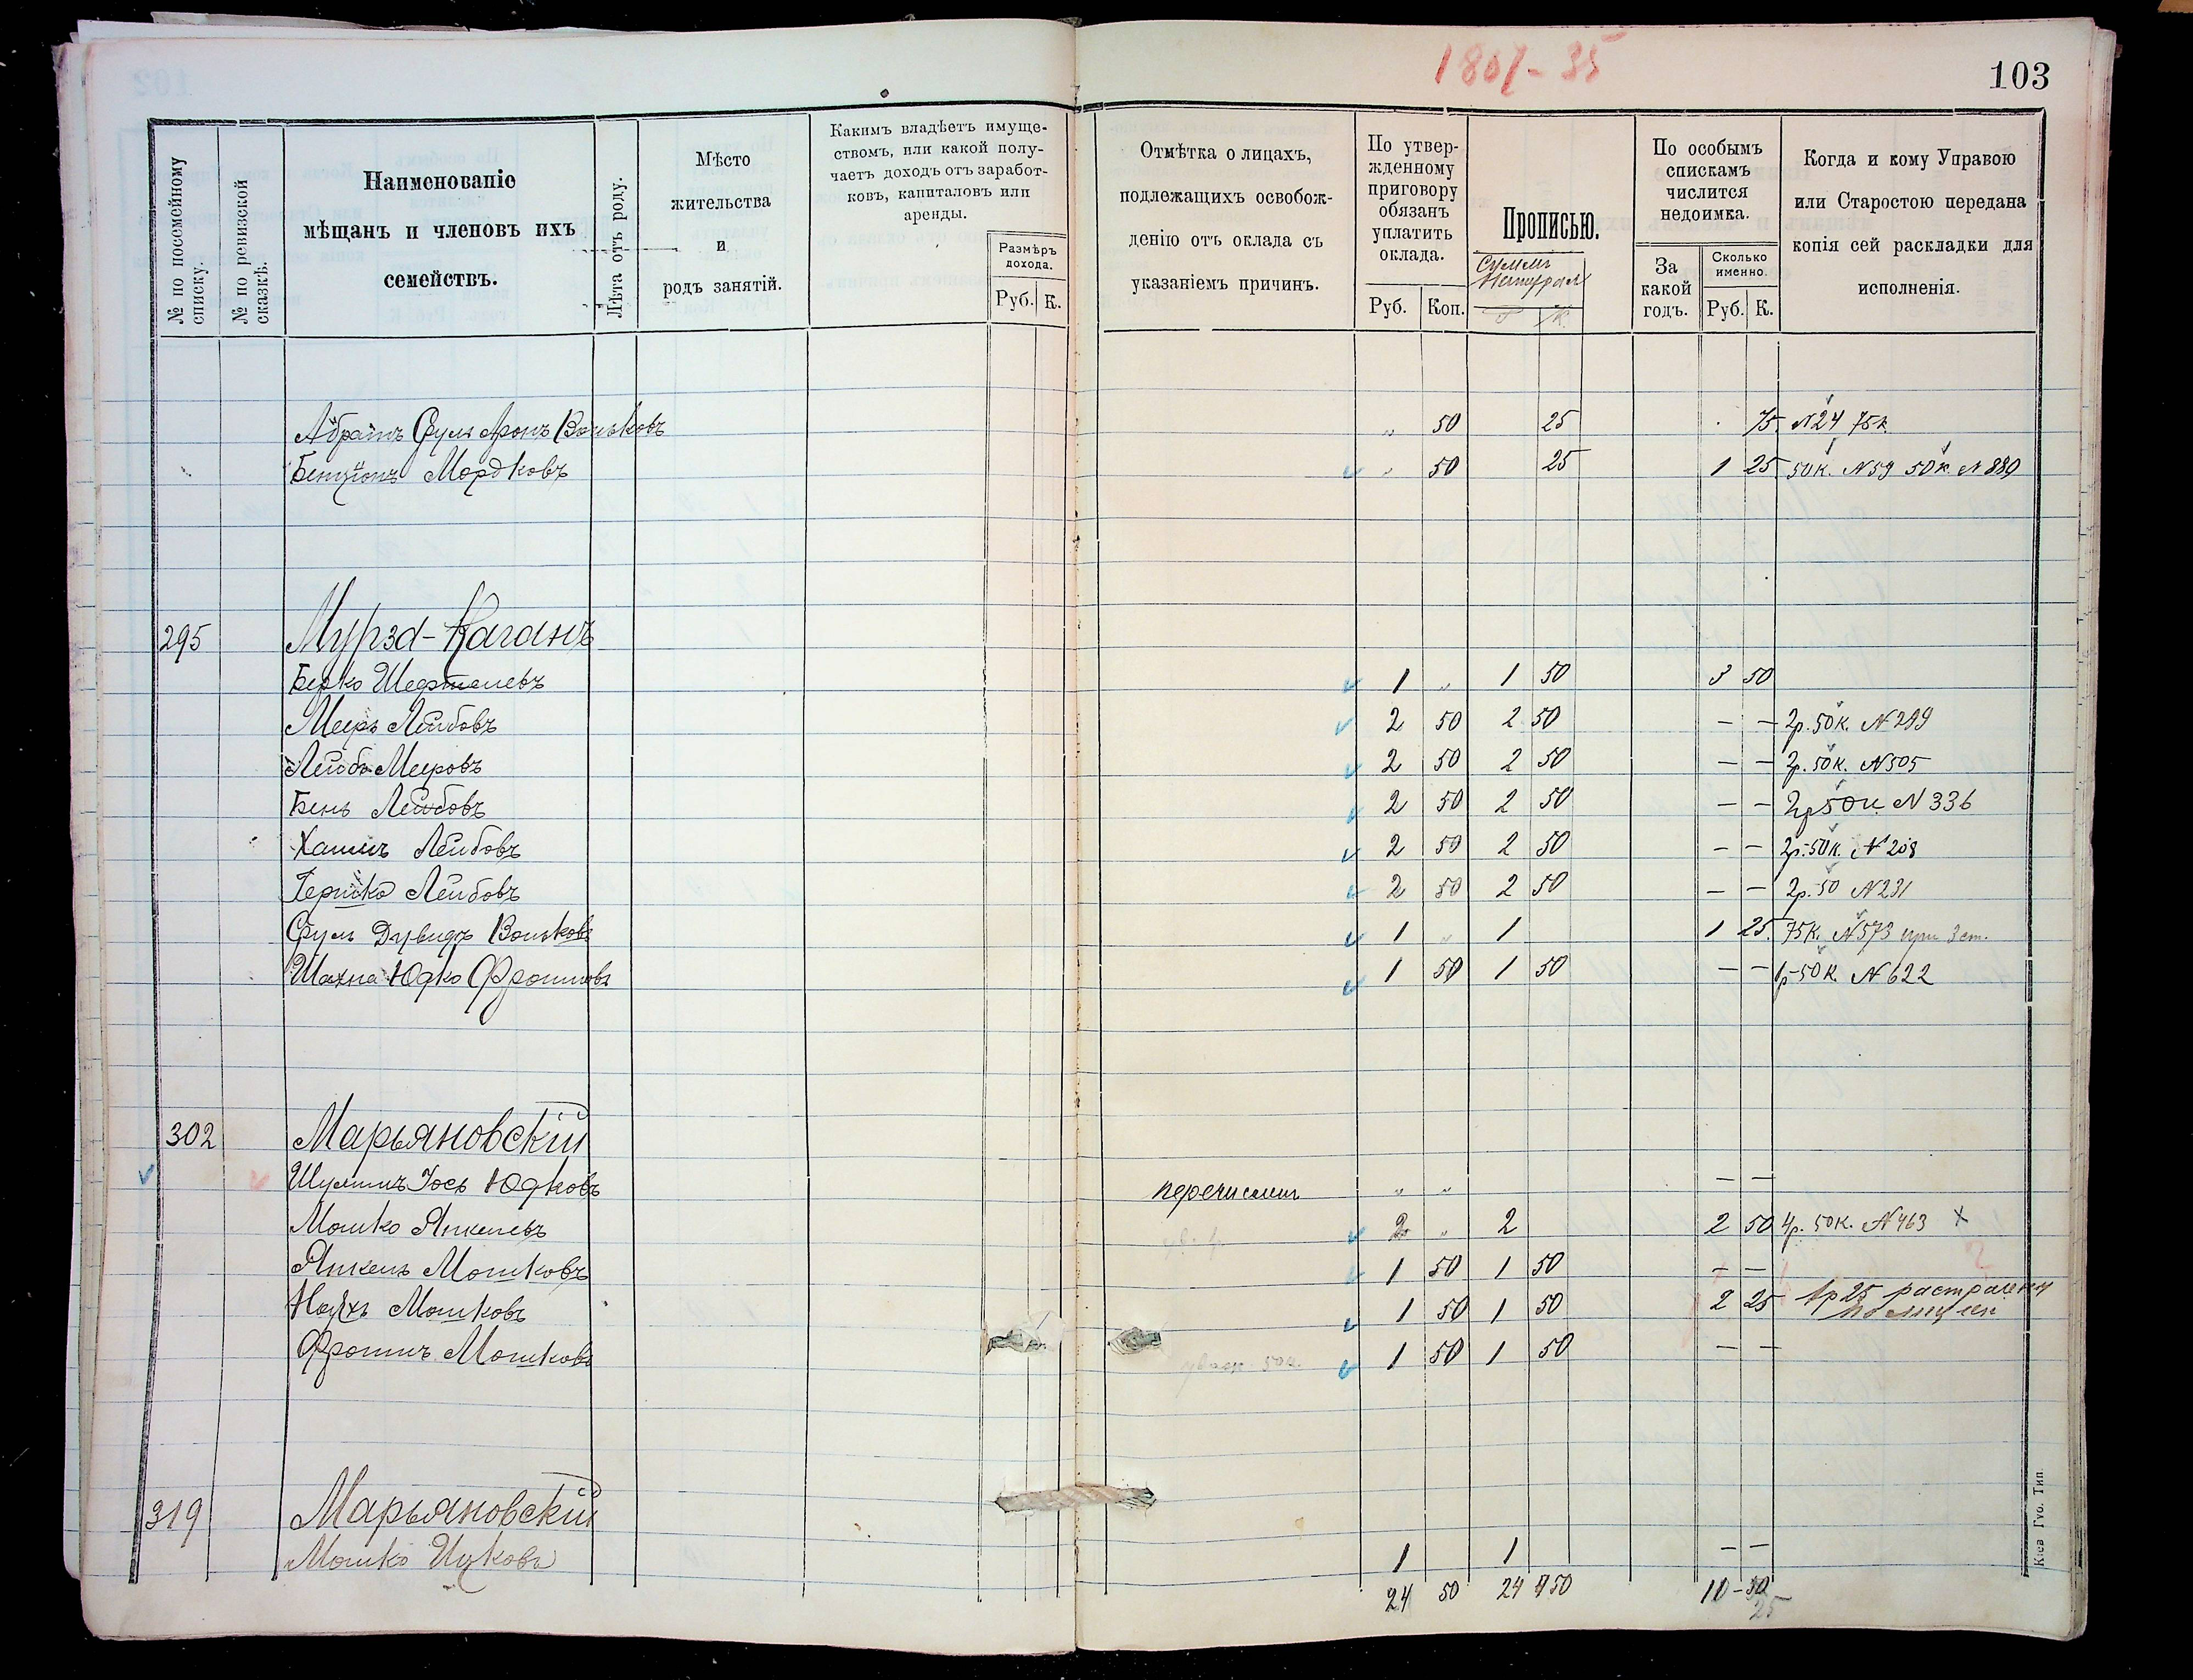 103
№ по посемейному списку.
№ по ревизской сказкѣ.
Наименованіе мѣщанъ и членовъ ихъ семействъ.
Лѣта отъ роду.
Мѣсто жительства и родъ занятій.
Какимъ владѣетъ имуществомъ, или какой получаетъ доходъ отъ заработковъ, капиталовъ или аренды.
Размѣръ дохода.
Руб. К.
Отмѣтка о лицахъ, подлежащихъ освобожденію отъ оклада съ указаніемъ причинъ.
По утвержденному приговору обязанъ уплатить оклада.
Руб. Коп.
Прописью.
По особымъ спискамъ числится недоимка.
За какой годъ.
Сколько именно.
Руб. К.
Когда и кому Управою или Старостою передана копія сей раскладки для исполненія.
Абрамъ Сруль Аронъ Вольковъ „ 50 25 75 N 24 75 к.
Бенціонъ Мордковъ „ 50 25 1 25 50 к. N 59 50 к. N 880
295 Мурза-Каганъ
Берко Шефтелевъ 1 „ 1 50 3 50
Мееръ Лейбовъ 2 50 2 50 — — 2р. 50 к. N 299
Лейба Мееровъ 2 50 2 50 — — 2р. 50 к. N 505
Бень Лейбовъ 2 50 2 50 — — 2р 50 к N 336
Хаимъ Лейбовъ 2 50 2 50 — — 2р. 50 к. N 208
Гершко Лейбовъ 2 50 2 50 — — 2р. 50 N 231
Сруль Дувидъ Вольковъ 1 „ 1 1 25 75 к. N 573 при 3 ст.
Шахна Юдко Фроимовъ 1 50 1 50 — — 1р 50 к. N 622
302 Марьяновскій
Шулимъ Іось Юдковъ перечислен „ „ — —
Мошко Янкелевъ 2 „ 2 2 50 4р. 50 к. N 463 x
Янкель Мошковъ 1 50 1 50 — —
Нойхъ Мошковъ 1 50 1 50 2 25 1р 25
Фроимъ Мошковъ 1 50 1 50 — —
319 Марьяновскій
Мошко Ицковъ 1 1 — —
24 50 24 50 10 - 50
25
Кіев Губ. Тип.